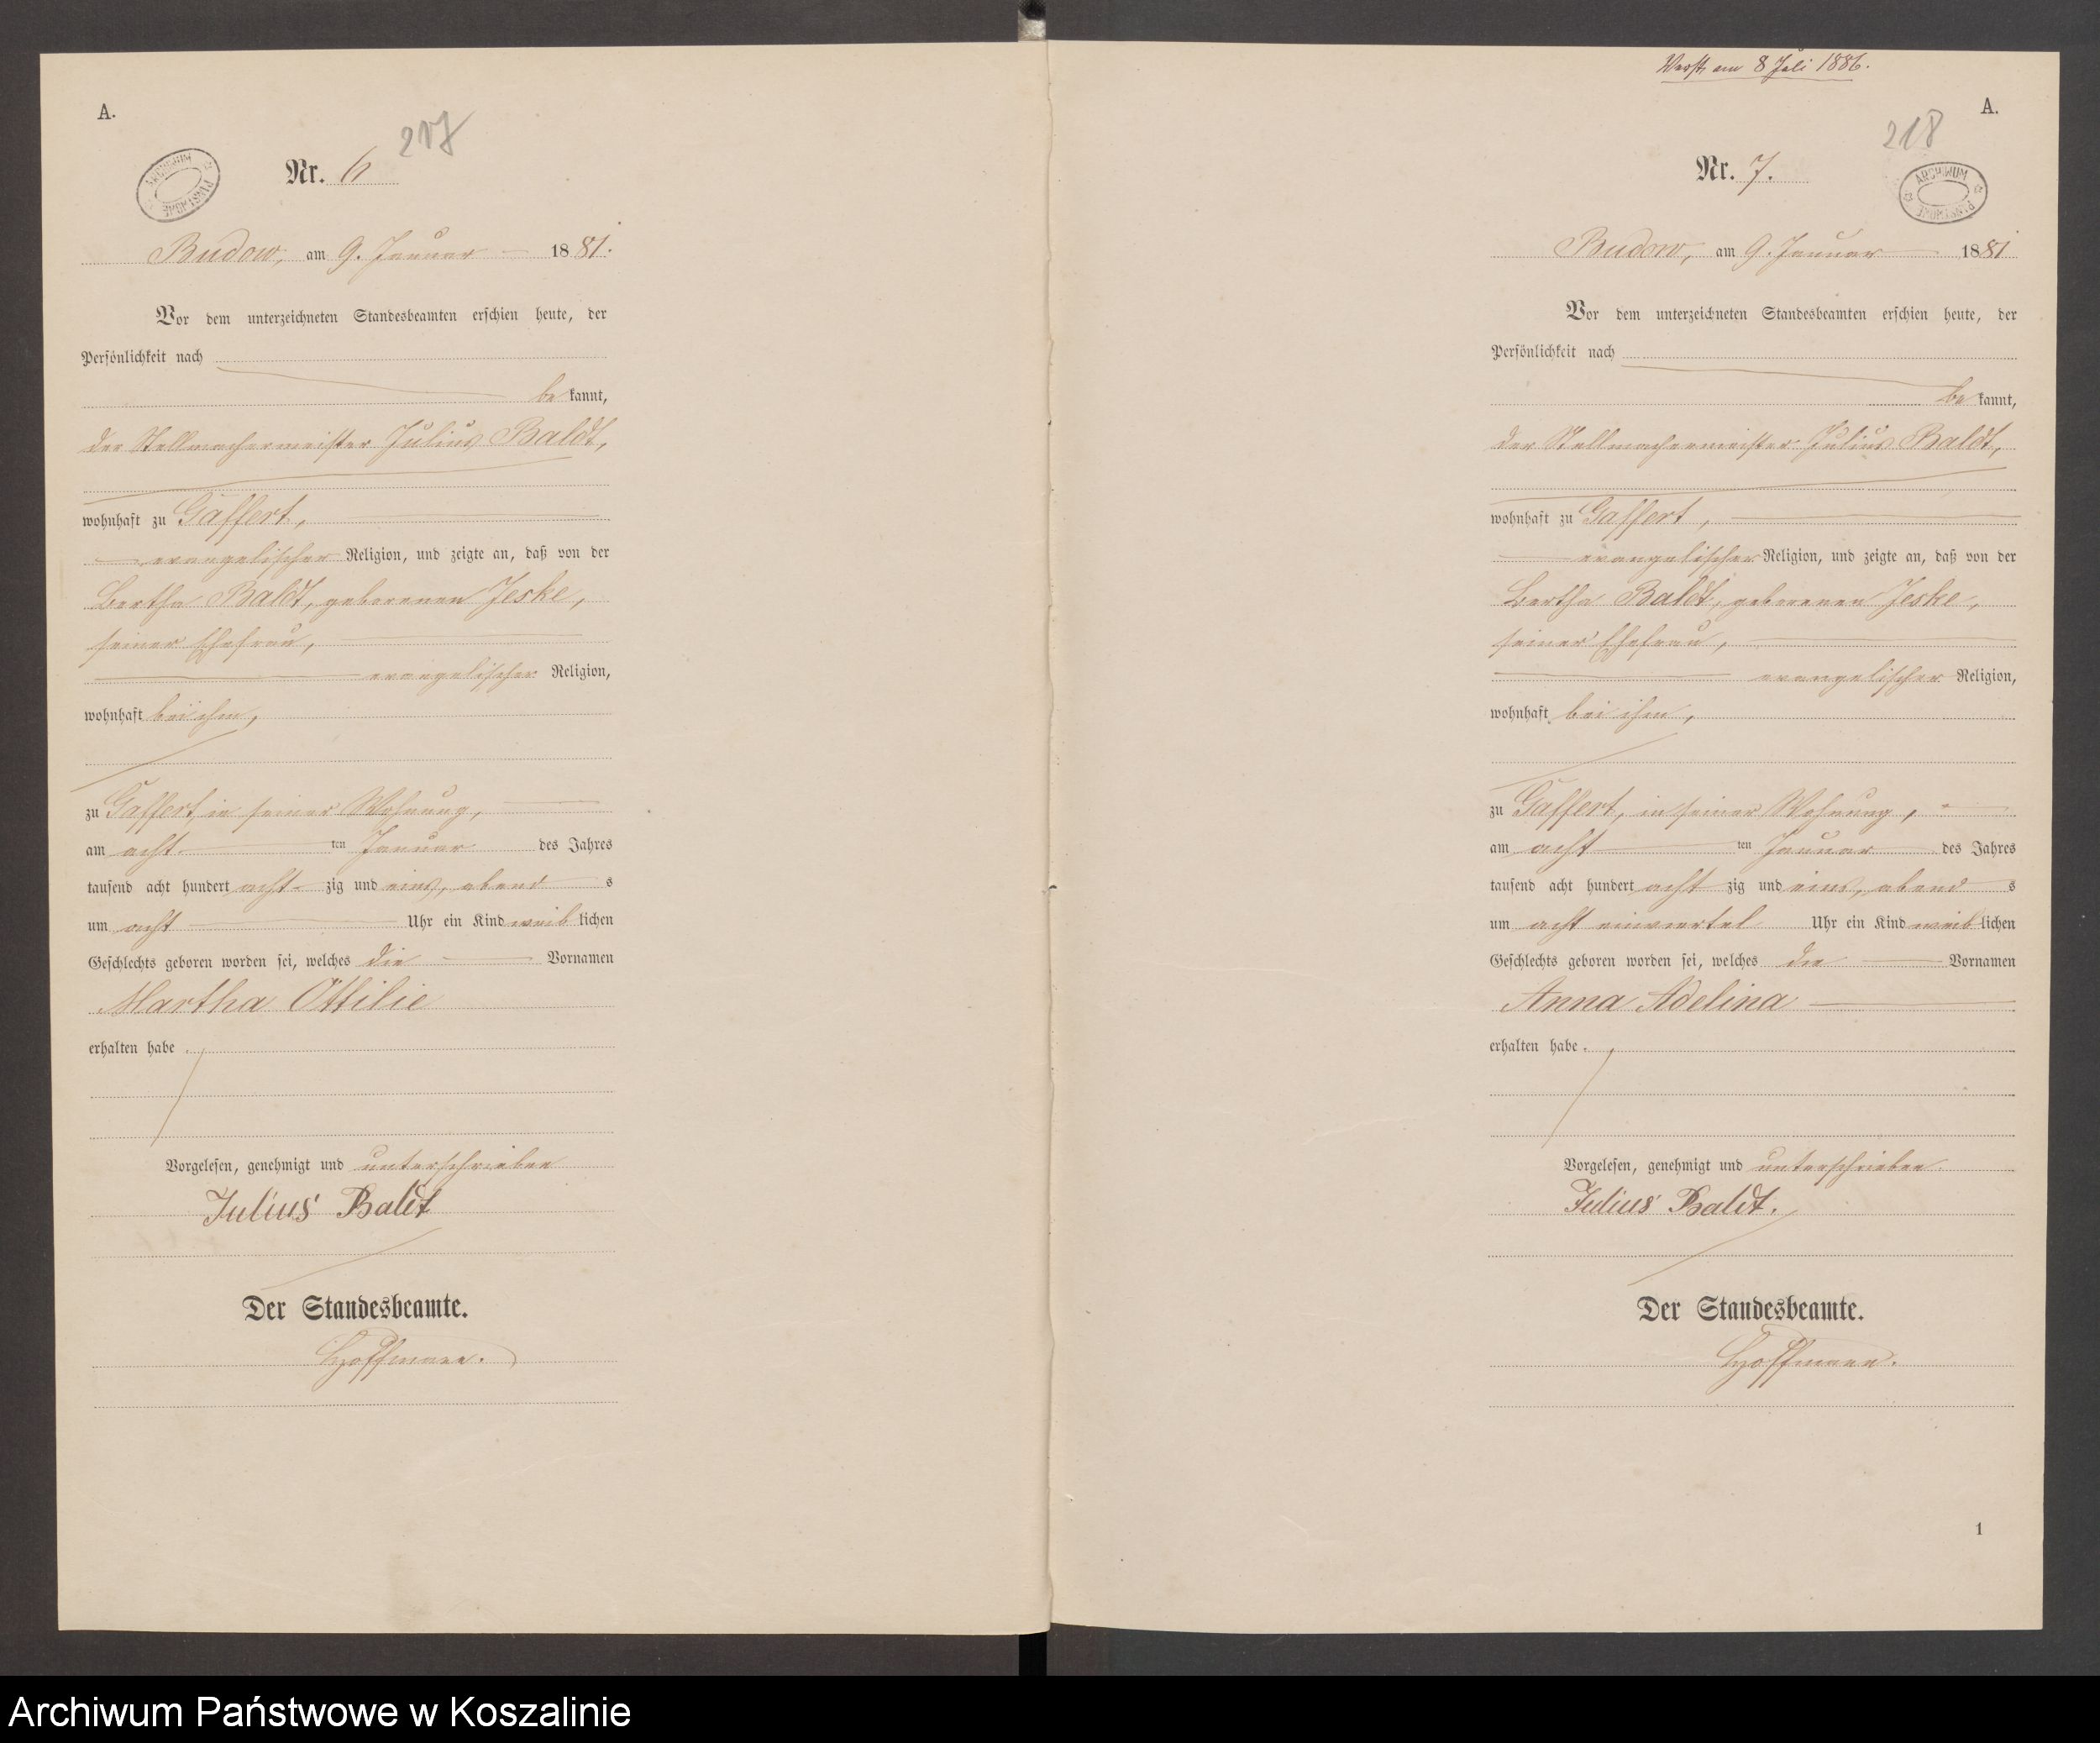 A.
217
ARCHIWUM PAŃSTWOWE
Nr. 6
Budow, am 9. Januar 1881.
Vor dem unterzeichneten Standesbeamten erschien heute, der
Persönlichkeit nach
be kannt,
der Stellmachermeister Julius Baldt,
wohnhaft zu Gaffert,
evangelischer Religion, und zeigte an, daß von der
Bertha Baldt, geborenen Jeske,
seiner Ehefrau,
evangelischer Religion,
wohnhaft bei ihm,
zu Gaffert, in seiner Wohnung,
am acht ten Januar des Jahres
tausend acht hundert acht zig und eins, abend s
um acht Uhr ein Kind weib lichen
Geschlechts geboren worden sei, welches die Vornamen
Martha Ottilie
erhalten habe.
Vorgelesen, genehmigt und unterschrieben
Julius Baldt
Der Standesbeamte.
Hoffmann.
am 8 Juli 1886.
A.
218
ARCHIWUM PAŃSTWOWE
Nr. 7.
Budow, am 9. Januar 1881
Vor dem unterzeichneten Standesbeamten erschien heute, der
Persönlichkeit nach
be kannt,
der Stellmachermeister Julius Baldt,
wohnhaft zu Gaffert,
evangelischer Religion, und zeigte an, daß von der
Bertha Baldt, geborenen Jeske,
seiner Ehefrau,
evangelischer Religion,
wohnhaft bei ihm,
zu Gaffert, in seiner Wohnung,
am acht ten Januar des Jahres
tausend acht hundert acht zig und eins, abend s
um acht einviertel Uhr ein Kind weib lichen
Geschlechts geboren worden sei, welches die Vornamen
Anna Adelina
erhalten habe.
Vorgelesen, genehmigt und unterschrieben.
Julius Baldt.
Der Standesbeamte.
Hoffmann.
1
Archiwum Państwowe w Koszalinie